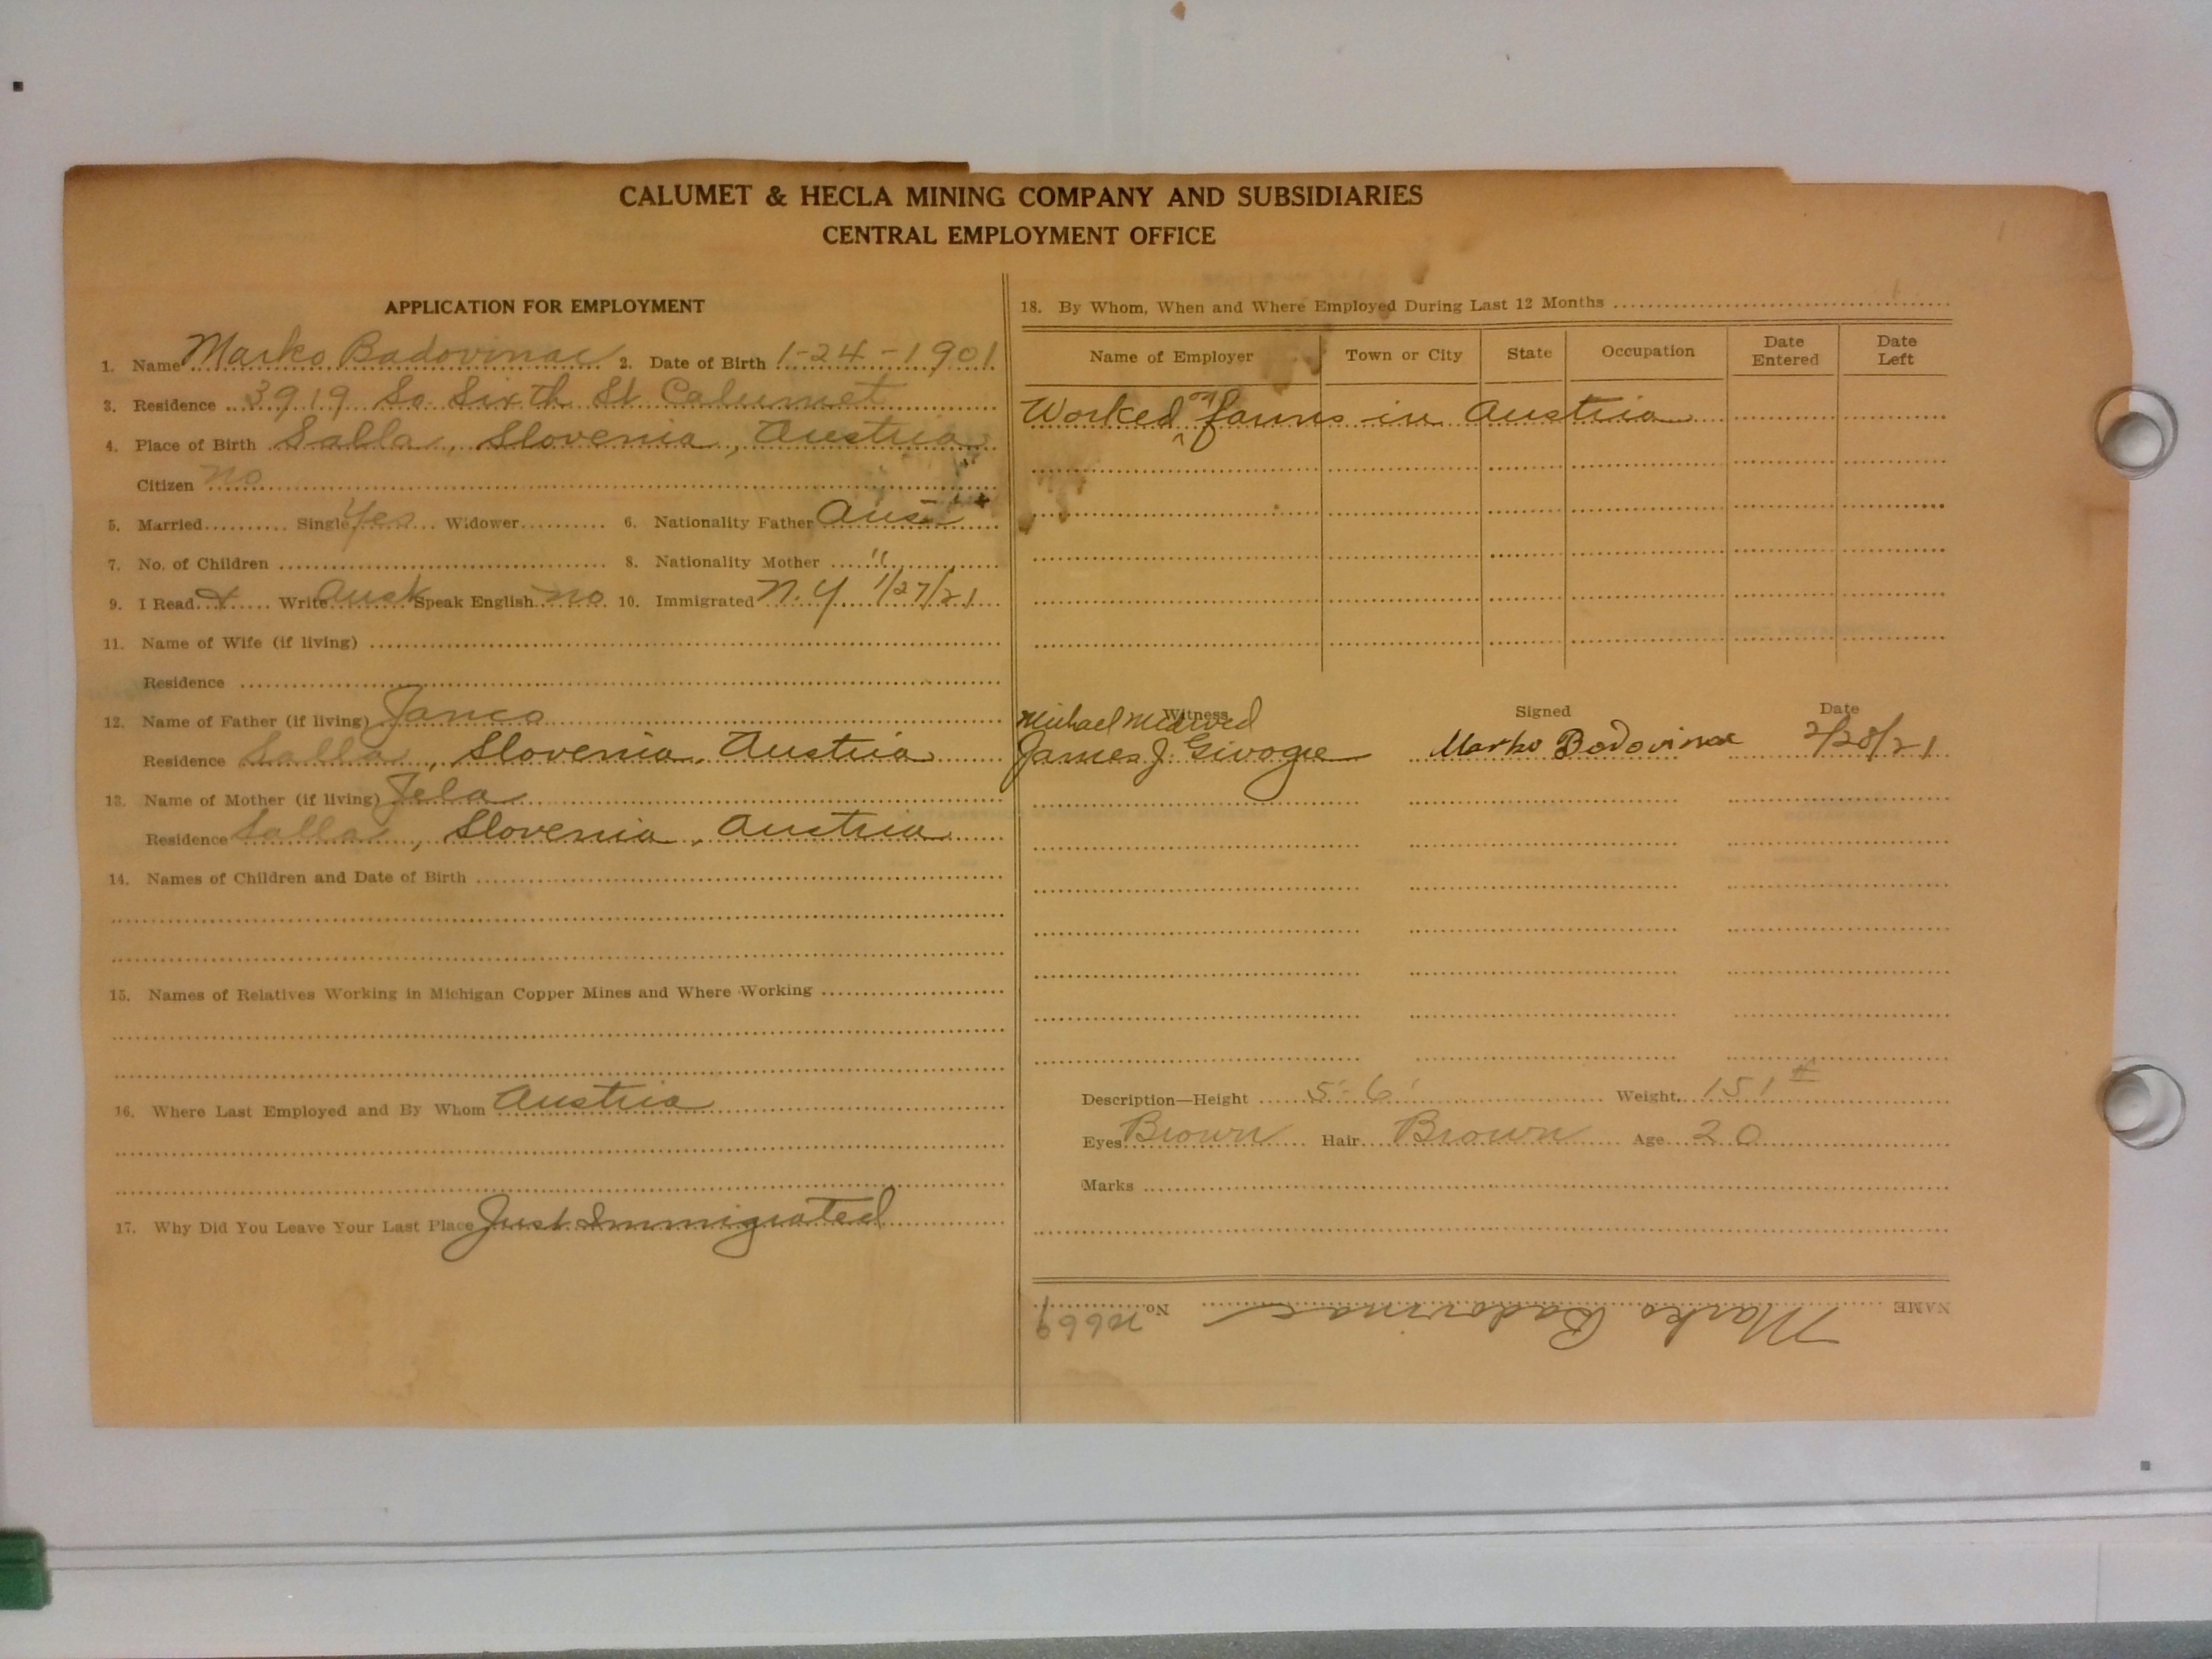 CALUMET & HECLA MINING COMPANY AND SUBSIDIARIES
CENTRAL EMPLOYMENT OFFICE
APPLICATION FOR EMPLOYMENT
1. Name Marko Badovinac 2. Date of Birth 1-24-1901
3. Residence 3919 So Sixth St Calumet
4. Place of Birth Salla, Slovenia, Austria
Citizen no
5. Married Single Yes Widower 6. Nationality Father Aust
7. No. of Children 8. Nationality Mother "
9. I Read & Write Aust Speak English no 10. Immigrated N.Y. 1/27/21
11. Name of Wife (if living)
Residence
12. Name of Father (if living) Janco
Residence Salla, Slovenia, Austria
13. Name of Mother (if living) Jela
Residence Salla, Slovenia, Austria
14. Names of Children and Date of Birth
15. Names of Relatives Working in Michigan Copper Mines and Where Working
16. Where Last Employed and By Whom Austria
17. Why Did You Leave Your Last Place Just Immigrated
18. By Whom, When and Where Employed During Last 12 Months
Name of Employer Town or City State Occupation Date Entered Date Left
Worked on farms in Austria
Witness Signed Date
Michael Medved
James J. Marko Badovinac 2/28/21
Description—Height 5'-6' Weight 151 #
Eyes Brown Hair Brown Age 20
Marks
NAME Marko Badovinac No.